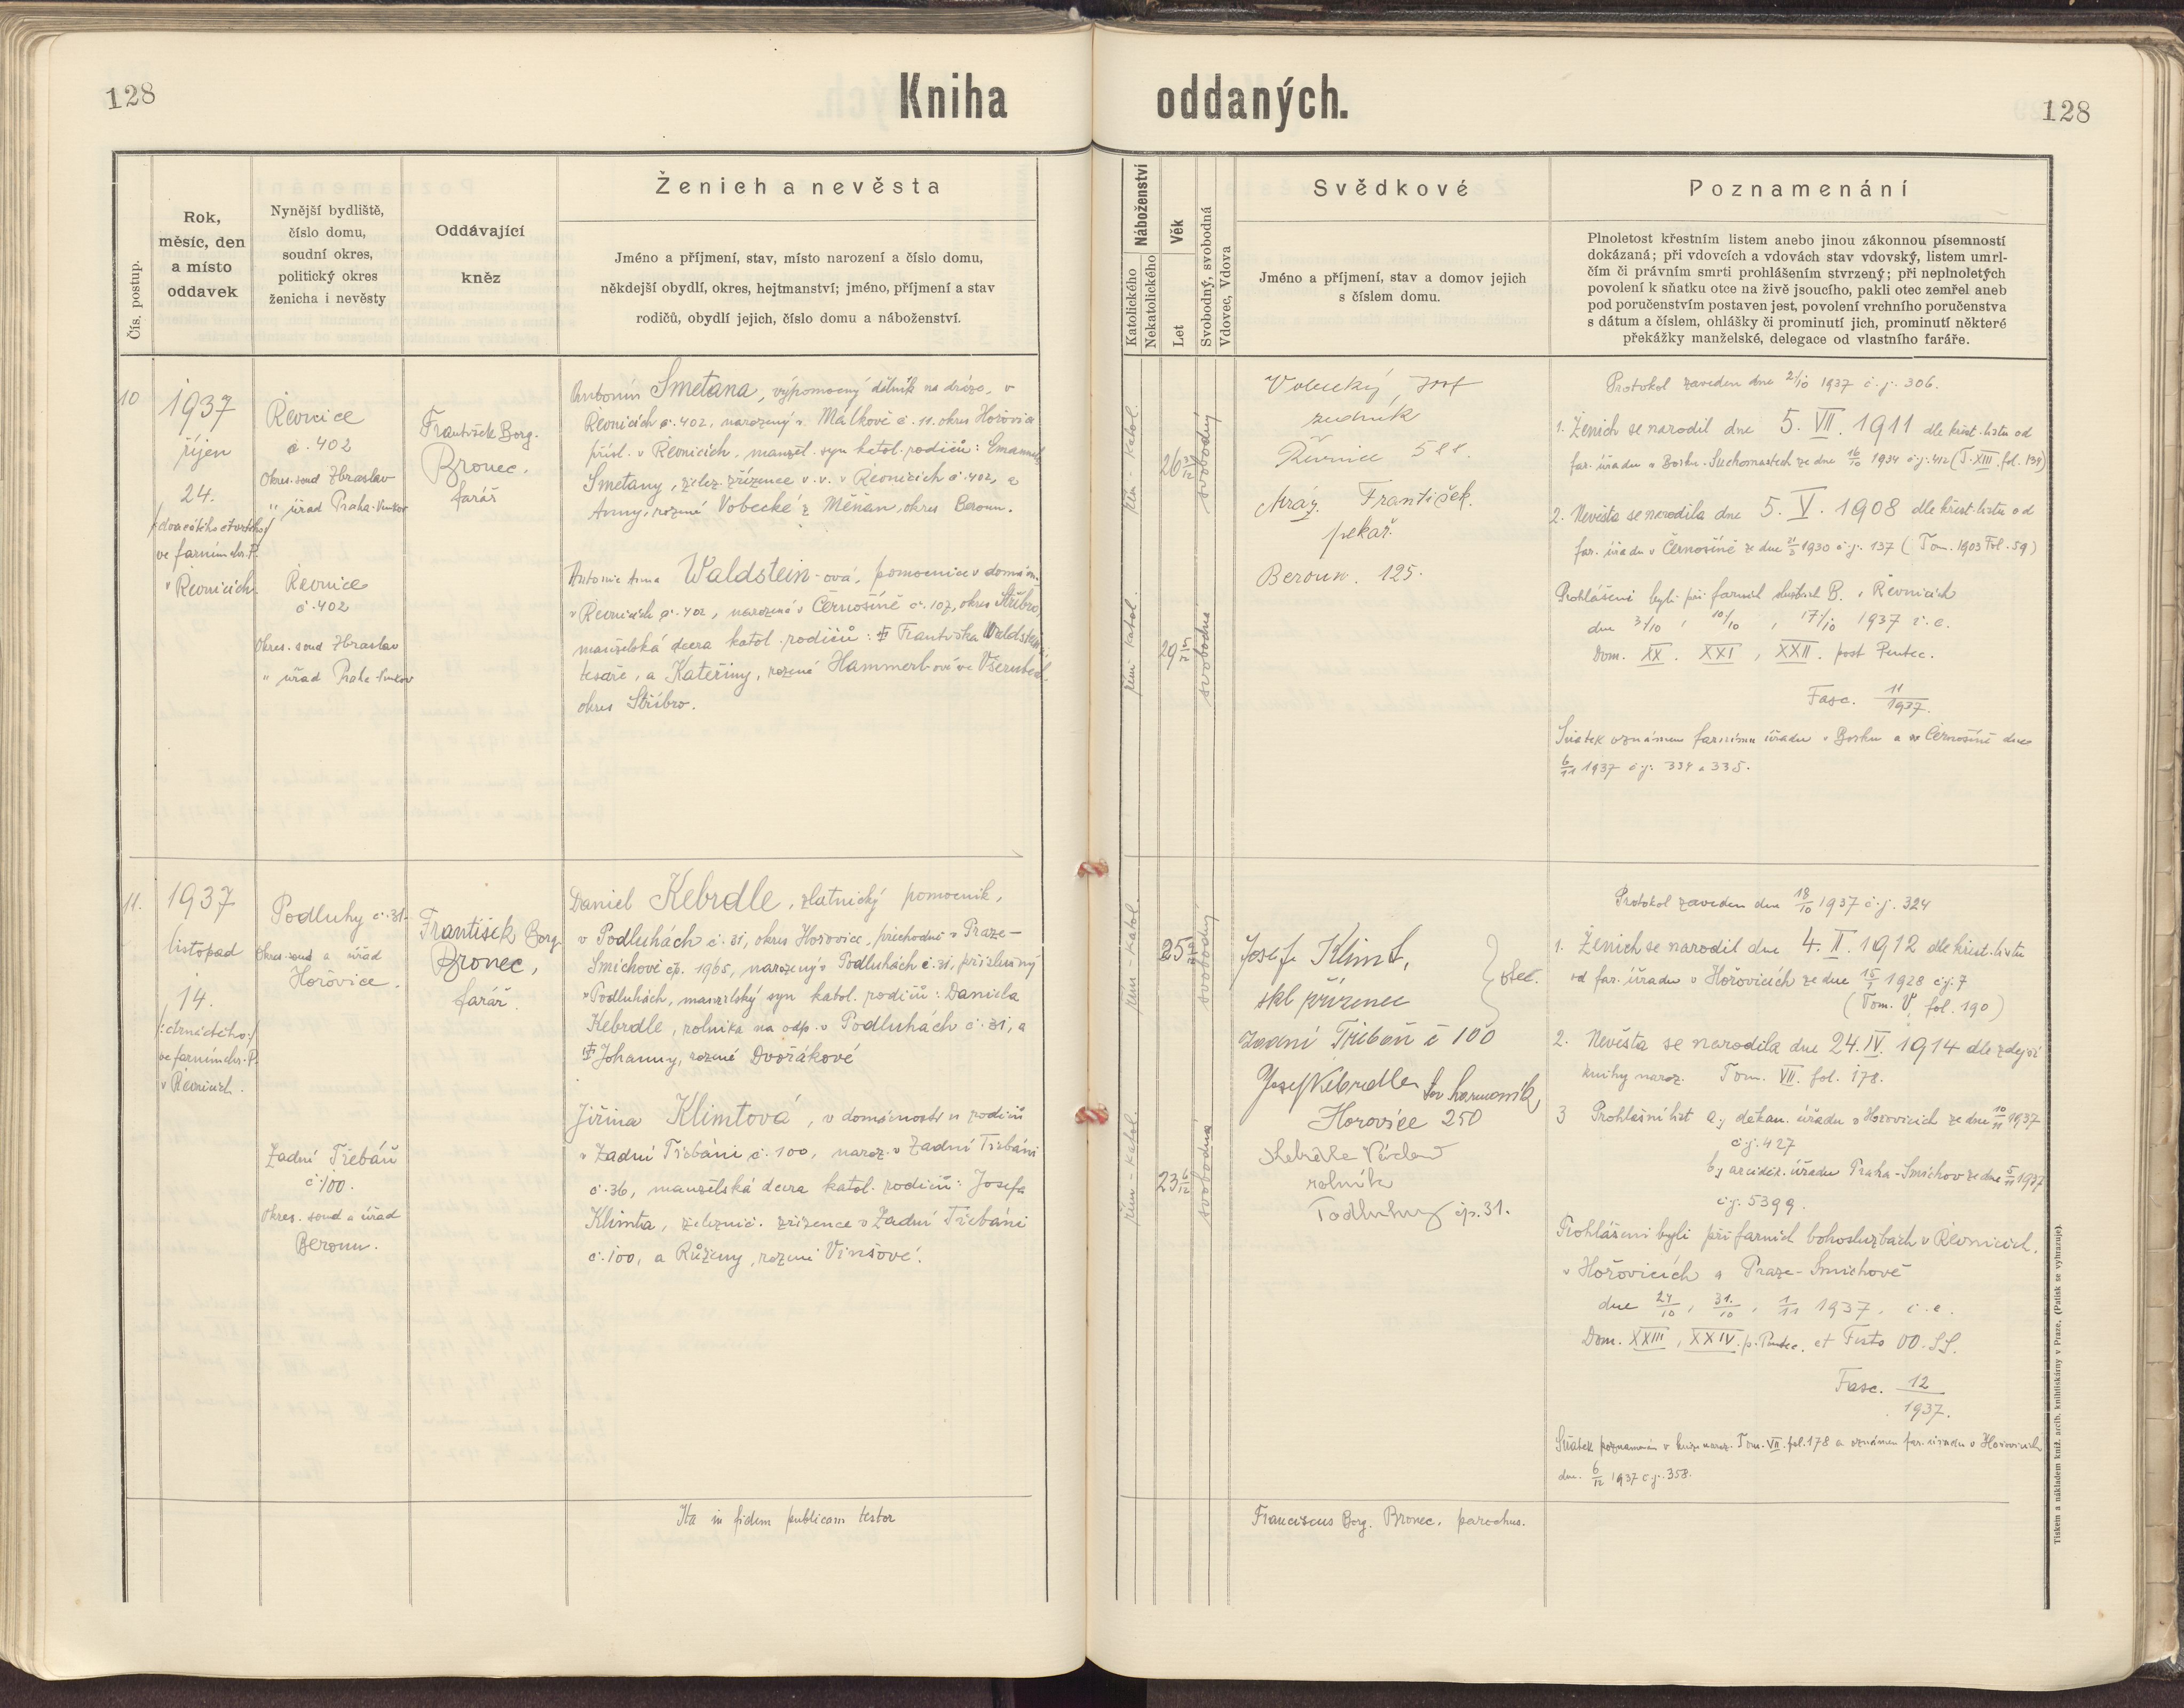 128
Kniha
oddaných.
128
Čís. postup.
Rok,
měsíc, den
a místo
oddavek
Nynější bydliště,
číslo domu,
soudní okres,
politický okres
ženicha i nevěsty
Oddávající
kněz
Ženich a nevěsta
Jméno a příjmení, stav, místo narození a číslo domu,
někdejší obydlí, okres, hejtmanství; jméno, příjmení a stav
rodičů, obydlí jejich, číslo domu a náboženství.
Náboženství
Katolického
Nekatolického
Věk
Let
Svobodný, svobodná
Vdovec, Vdova
Svědkové
Jméno a příjmení, stav a domov jejich
s číslem domu.
Poznamenání
Plnoletost křestním listem anebo jinou zákonnou písemností
dokázaná; při vdovcích a vdovách stav vdovský, listem umrl-
čím či právním smrti prohlášením stvrzený; při neplnoletých
povolení k sňatku otce na živě jsoucího, pakli otec zemřel aneb
pod poručenstvím postaven jest, povolení vrchního poručenstva
s dátum a číslem, ohlášky či prominutí jich, prominutí některé
překážky manželské, delegace od vlastního faráře.
10
1937
říjen
24.
/dvacátého čtvrtého/
ve farním chr. P.
v Řevnicích.
Řevnice
č. 402
Okres. soud Zbraslav
" úřad Praha-Venkov
Řevnice
č. 402
Okres. soud Zbraslav
" úřad Praha-Venkov
František Borg.
Bronec.
farář
Antonín Smetana, výpomocný dělník na dráze, v
Řevnicích č. 402, narozený v Málkově č. 11. okres Hořovice
přísl. v Řevnicích, manžel. syn katol. rodičů: Emanuela
Smetany, želez. zřízence v. v. v Řevnicích č. 402, a
Anny, rozené Vobecké z Měňan, okres Beroun.
Antonie Anna Waldstein-ová, pomocnice v domácn.
v Řevnicích č. 402, narozená v Černošíně č. 107, okres Stříbro,
manželská dcera katol. rodičů: Františka Waldsteina
tesaře, a Kateřiny, rozené Hammerl-ové ve Všerubech,
okres Stříbro.
řím - katol.
řím. katol.
26 3/12
29 5/12
svobodný
svobodná
Vobecký Josf
zedník
Řevnice 511.
Mráz František.
pekař.
Beroun. 125.
Protokol zaveden dne 2/10 1937 č. j. 306.
1. Ženich se narodil dne 5. VII. 1911 dle křest. listu od
far. úřadu v Borku-Suchomastech ze dne 16/10 1934 č. j. 412 (T. XIII. fol. 134)
2. Nevěsta se narodila dne 5. V. 1908 dle křest. listu od
far. úřadu v Černošíně ze dne 21/5 1930 č. j. 137 (Tom. 1903 Fol. 59)
Prohlášeni byli při farních službách B. v Řevnicích
dne 3/10, 10/10, 17/10 1937 i. e.
Dom. XX. XXI, XXII. post Pentec.
Fasc. 11/1937.
Sňatek oznámen farnímu úřadu v Borku a v Černošíně dne
6/11 1937 č. j. 334 a 335.
11.
1937
listopad
14.
/:čtrnáctého:/
ve farním chr. P.
v Řevnicích.
Podluhy č. 31.
Okres. soud a úřad
Hořovice.
Zadní Třebáň
č. 100.
Okres. soud a úřad
Beroun.
František Borg.
Bronec,
farář.
Daniel Kebrdle, zlatnický pomocník,
v Podluhách č. 31, okres Hořovice, přechodně v Praze-
Smíchově čp. 1965, narozený v Podluhách č. 31, příslušný
v Podluhách, manželský syn katol. rodičů: Daniela
Kebrdle, rolníka na odp. v Podluhách č. 31, a
Johanny, rozené Dvořákové
Jiřina Klimtová, v domácnosti u rodičů
v Zadní Třebáni č. 100, naroz. v Zadní Třebáni
č. 36, manželská dcera katol. rodičů: Josefa
Klimta, železnič. zřízence v Zadní Třebáni
č. 100, a Růženy, rozené Vinšové.
řím - katol.
řím - katol.
25 9/12
23 6/12
svobodný
svobodná
Josef Klimt,
skl. přízenec
otec.
Zadní Třebáň č 100
Josef Kebrdle
Hořovice 250
Kebrdle Václav
rolník
Podluhy čp. 31.
Protokol zaveden dne 18/10 1937 č. j. 324
1. Ženich se narodil dne 4. II. 1912 dle křest. listu
od far. úřadu v Hořovicích ze dne 15/1 1928 č. j. 7
(Tom. V, fol. 190)
2. Nevěsta se narodila dne 24. IV. 1914 dle zdejší
knihy naroz. Tom. VII. fol. 178.
3 Prohlášní list a., děkan. úřadu v Hořovicích ze dne 10/11 1937
č. j. 427
b., arciděk. úřadu Praha-Smíchov ze dne 5/11 1937
č. j. 5399.
Prohlášeni byli při farních bohoslužbách v Řevnicích,
v Hořovicích a Praze-Smíchově
dne 24/10, 31./10, 1/11 1937, i. e.
Dom. XXIII, XXIV. p. Pentec. et Festo OO. SS.
Fasc. 12/1937.
Sňatek poznamenán v knize naroz. Tom. VII. fol. 178 a oznámen far. úřadu v Hořovicích
dne 6/12 1937 č. j. 358.
Ita in fidem publicam testor
Franciscus Borg. Bronec, parochus.
Tiskem a nákladem kniž. arcib. knihtiskárny v Praze. (Patisk se vyhrazuje).